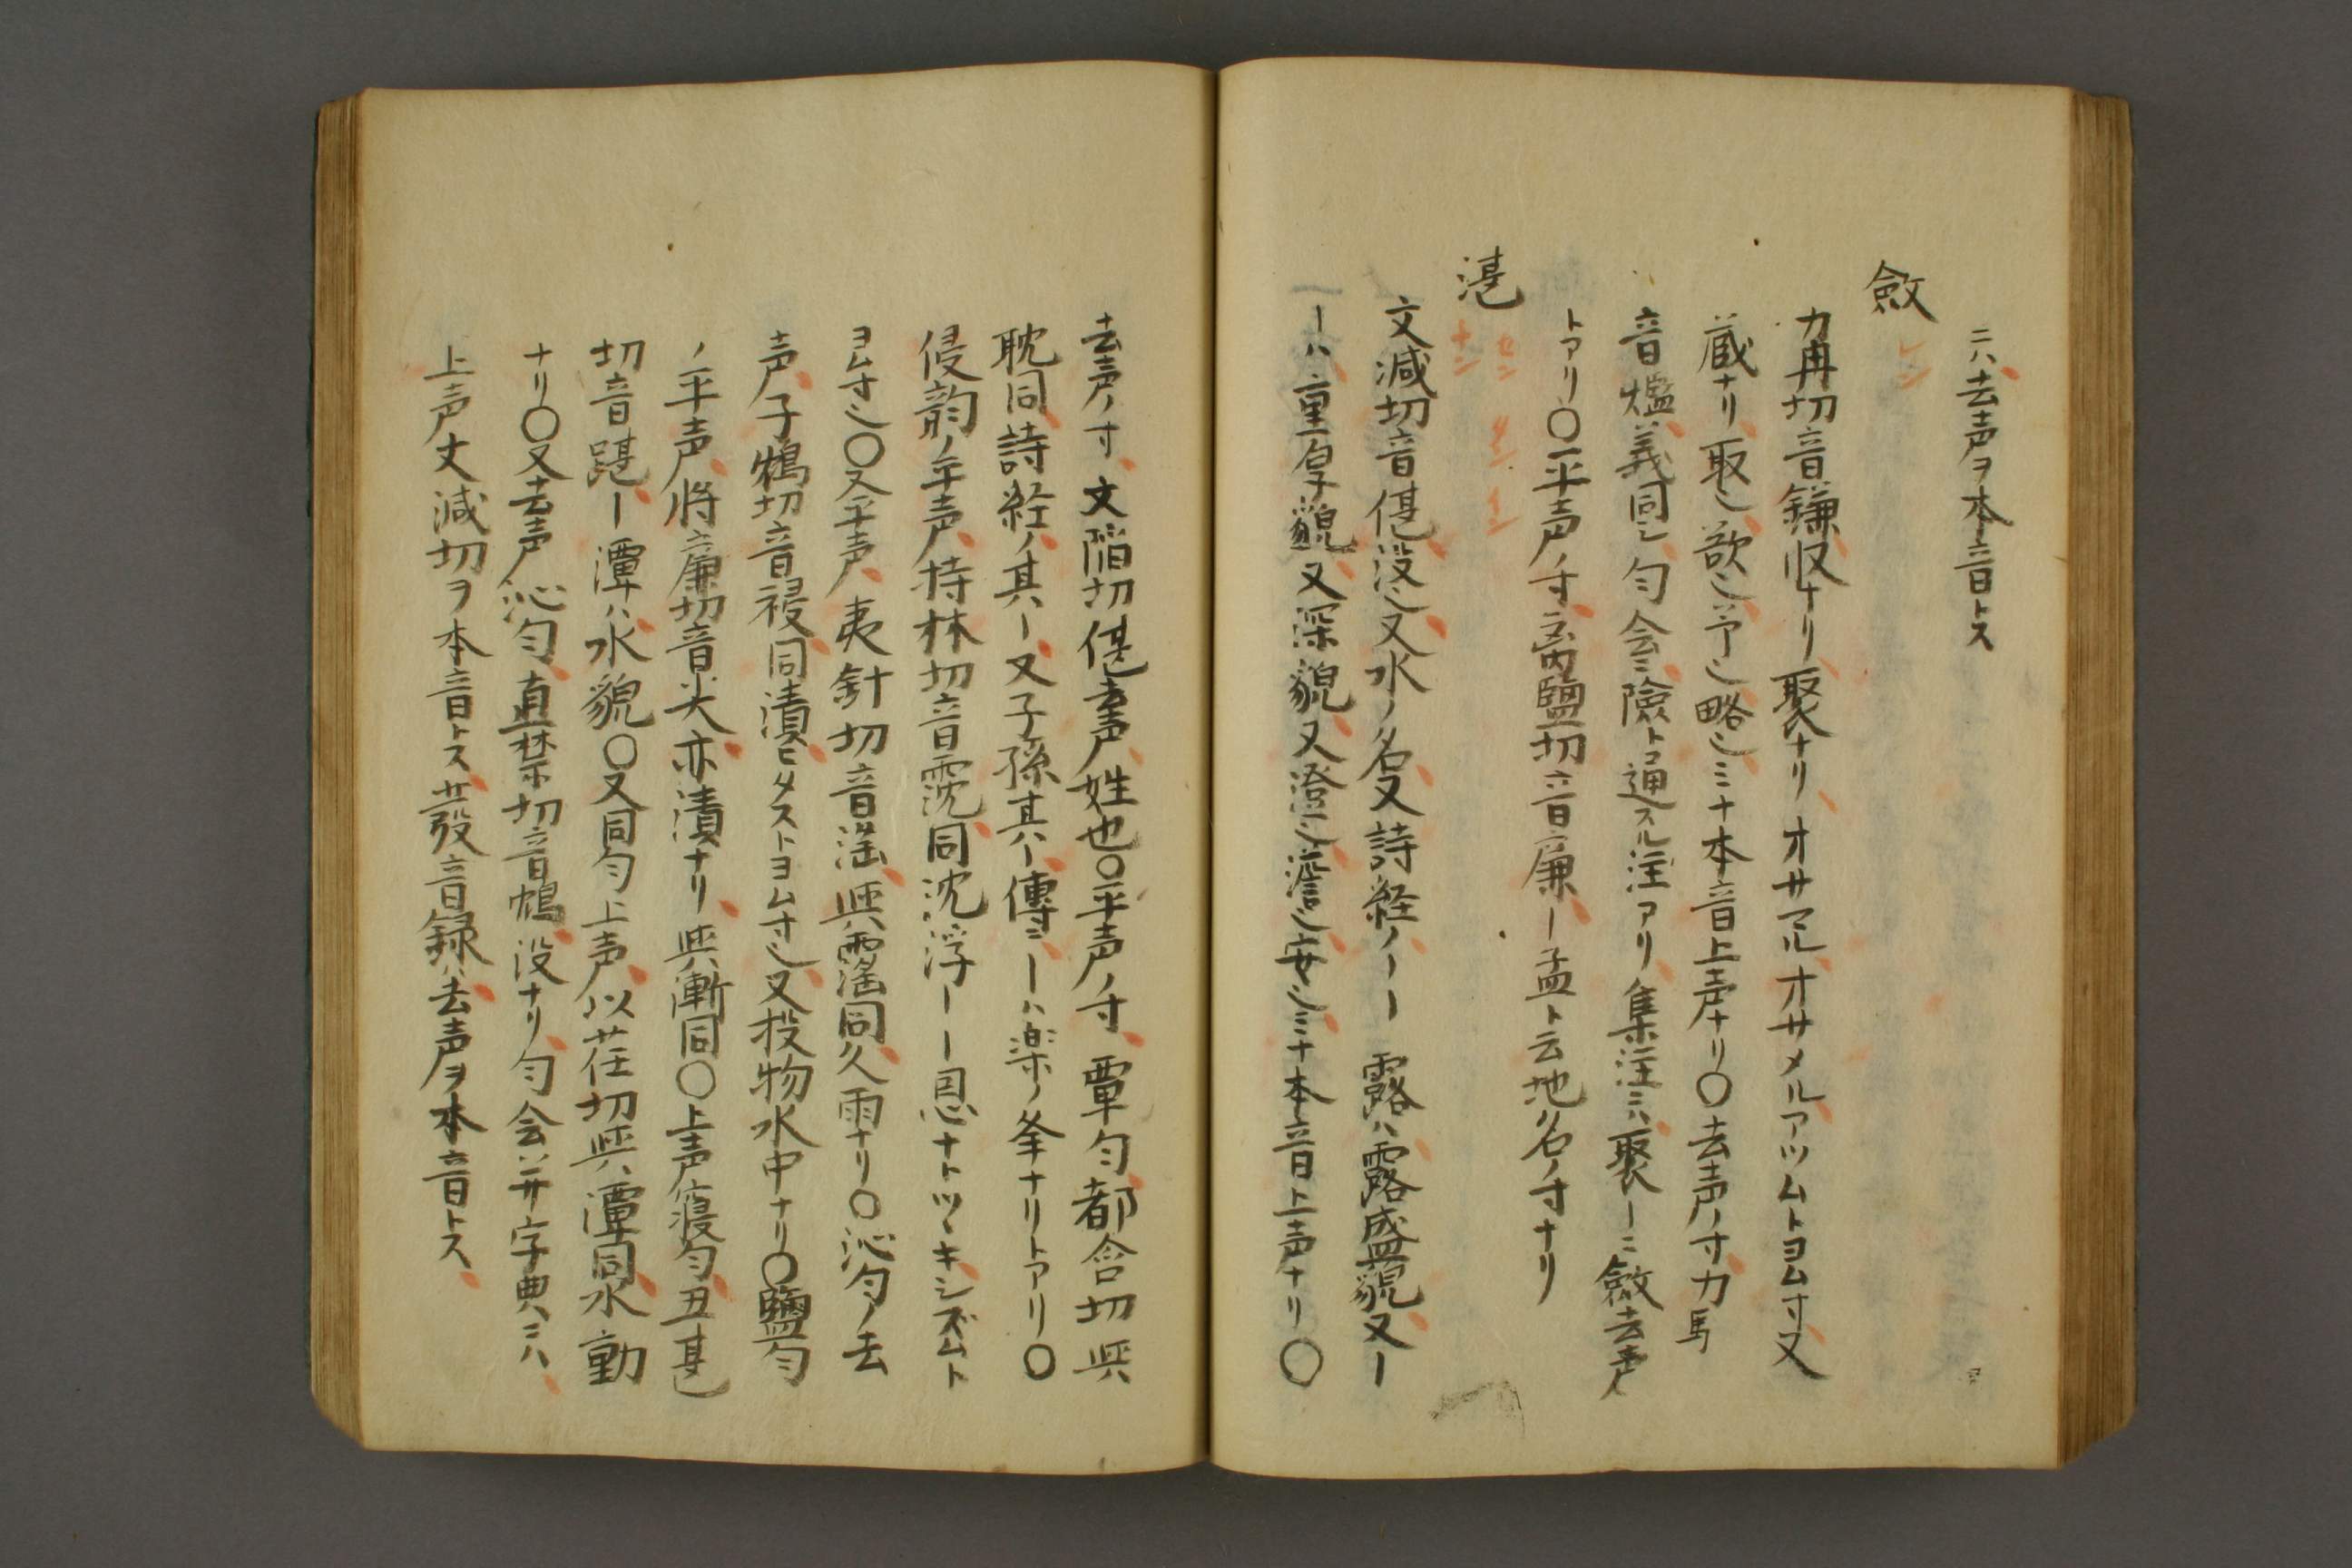 ニハ去声ヲ本音トス
斂
レン
力冉切音鎌収ナリ聚ナリオサマルオサメルアツムトヨム寸又
蔵ナリ取也欲也予也略也ミナ本音上声ナリ〇去声ノ寸力馬
音爁義同シ匀会ニ險ト通スル注アリ集注ニハ聚ーニ斂去声
トアリ〇平声ノ寸离鹽切音廉ー盂ト云地ノ名ノ寸ナリ
湛
セン タン イン
ナン
丈減切音偡没也又水ノ名又詩経ノーー露ハ露盛貌又ー
ーハ重厚貌又深貌又澄也澹也安也ミナ本音上声ナリ〇
去声ノ寸丈陥切偡去声姓也〇平声ノ寸覃匀都含切與
耽同詩経ノ其ー又子孫其ー傳ニーハ楽ノ夆ナリトアリ〇
侵韵ノ平声持林切音霃同沈浮ーー恩ナトツヽキシズムト
ヨム寸也〇又平声夷針切音淫與霪同久雨ナリ〇沁匀ノ去
声子鴆切音祲同漬ヒタストヨム寸也又投物水中ナリ〇鹽匀
ノ平声将廉切音尖亦漬ナリ與漸同〇上声寑匀丑甚
切音踸ー潭ハ水貌〇又同匀上声以荏切與潭同水動
ナリ〇又去声沁匀直禁切音鴆没ナリ匀会ハ并字典ニハ
上声丈減切ヲ本音トス発音録ハ去声ヲ本音トス